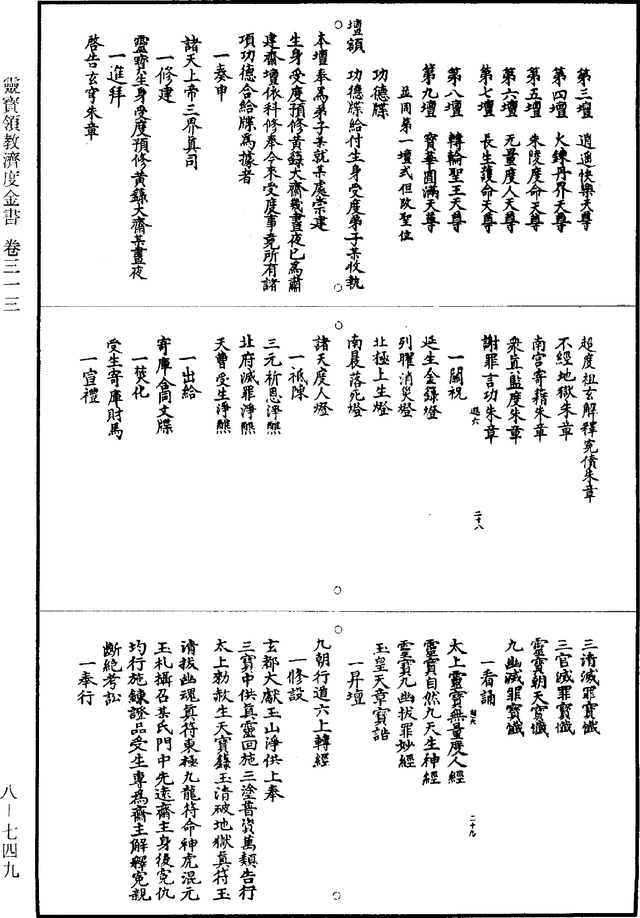 第三壇　逍遙快樂天尊
第四壇　火鍊丹界天尊
第五壇　朱陵度命天尊
第六壇　无量度人天尊
第七壇　長生護命天尊
第八壇　轉輪聖王天尊
第九壇　寶華圓滿天尊
並同第一壇式但改聖位
功德牒
壇額　功德牒給付生身受度弟子某收執
本壇奉為弟子某就某處崇建
生身受度預修黃籙大齋幾晝夜已為肅
建齋壇依科修奉今來受度事竟所有諸
項功德合給牒為據者
一奏申
諸天上帝三界真司
一修建
靈寶生身受度預修黃籙大齋某晝夜
一進拜
啓告玄穹朱章
超度祖玄解釋冤債朱章
不經地獄朱章
南宮寄籍朱章
衆真監度朱章
謝罪言功朱章
二十八
一關祝
延生金籙燈
列曜消災燈
北極上生燈
南晨落死燈
諸天度人燈
一祗陳
三元祈恩淨醮
北府滅罪淨醮
天曹受生淨醮
一出給
寄庫合同文牒
一焚化
受生寄庫財馬
一宣禮
三清滅罪寶懺
三官滅罪寶懺
靈寶朝天寶懺
九幽滅罪寶懺
一看誦
太上靈寶無量度人經
二十九
靈寶自然九天生神經
靈寶九幽拔罪妙經
玉皇天章寶誥
一昇壇
九朝行道六上轉經
一修設
玄都大獻玉山淨供上奉
三寶中供真靈回施三塗普資萬類告行
太上勑赦生天寶籙玉清破地獄真符玉
清拔幽魂真符東極九龍符命神虎混元
玉札攝召某氏門中先遠齋主身後冤仇
均行施鍊證品受生專為齋主解釋冤親
斷絶考訟
一奉行
靈寶領教濟度金書　卷三一三
八－七四九